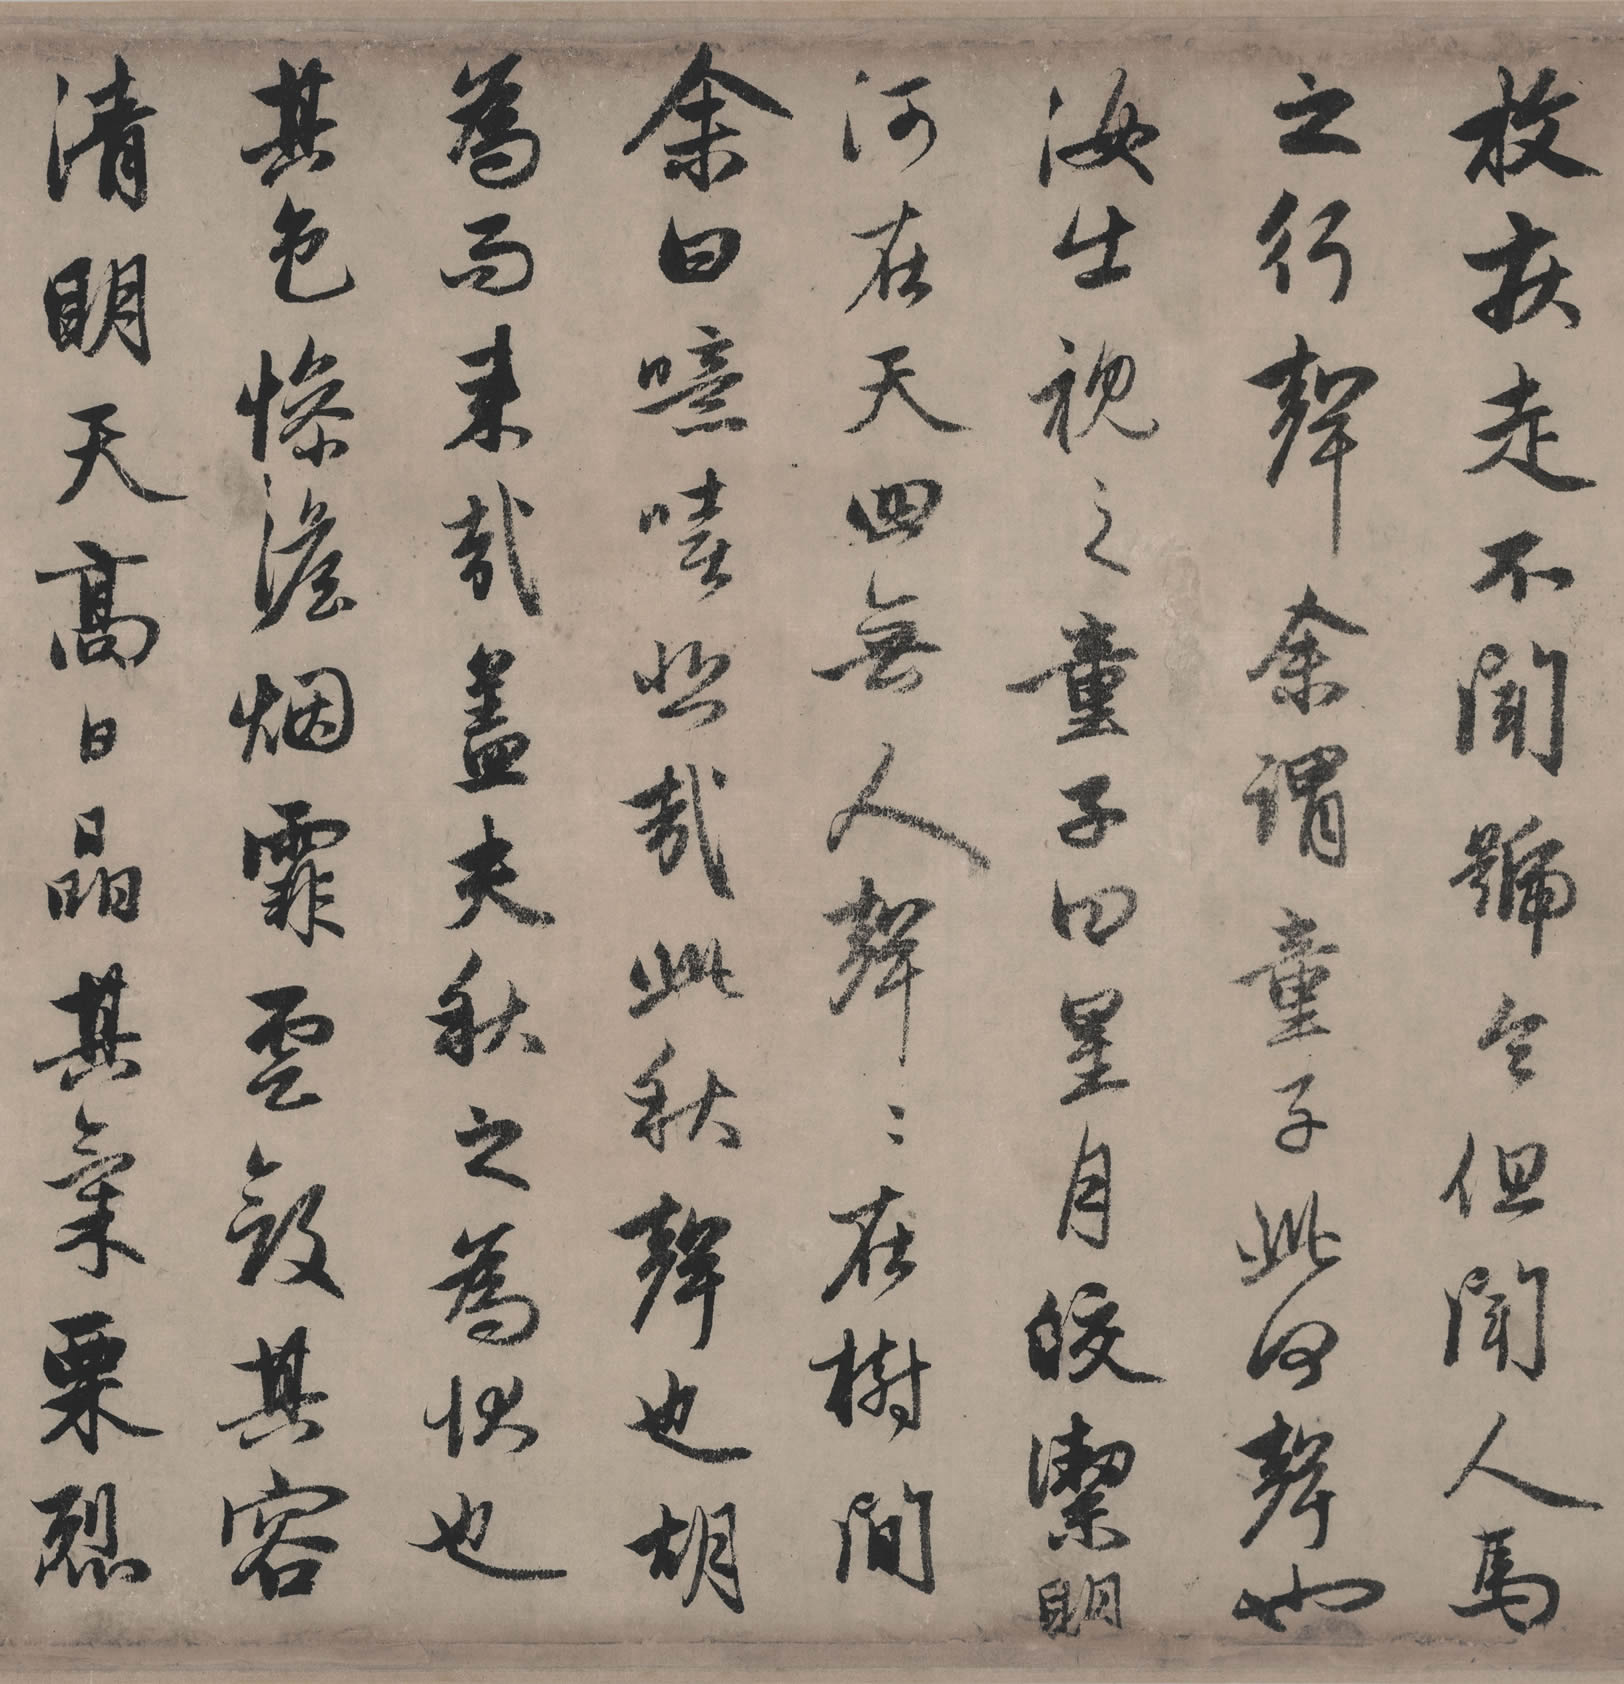 枚疾走不聞號令但聞人馬
之行聲余謂童子此何聲也
汝出視之童子曰星月皎潔明
河在天四無人聲〻在樹間
余曰噫嘻悲哉此秋聲也胡
為而来哉盖夫秋之為状也
其色慘澹烟霏雲斂其容
清明天高日晶其氣栗烈